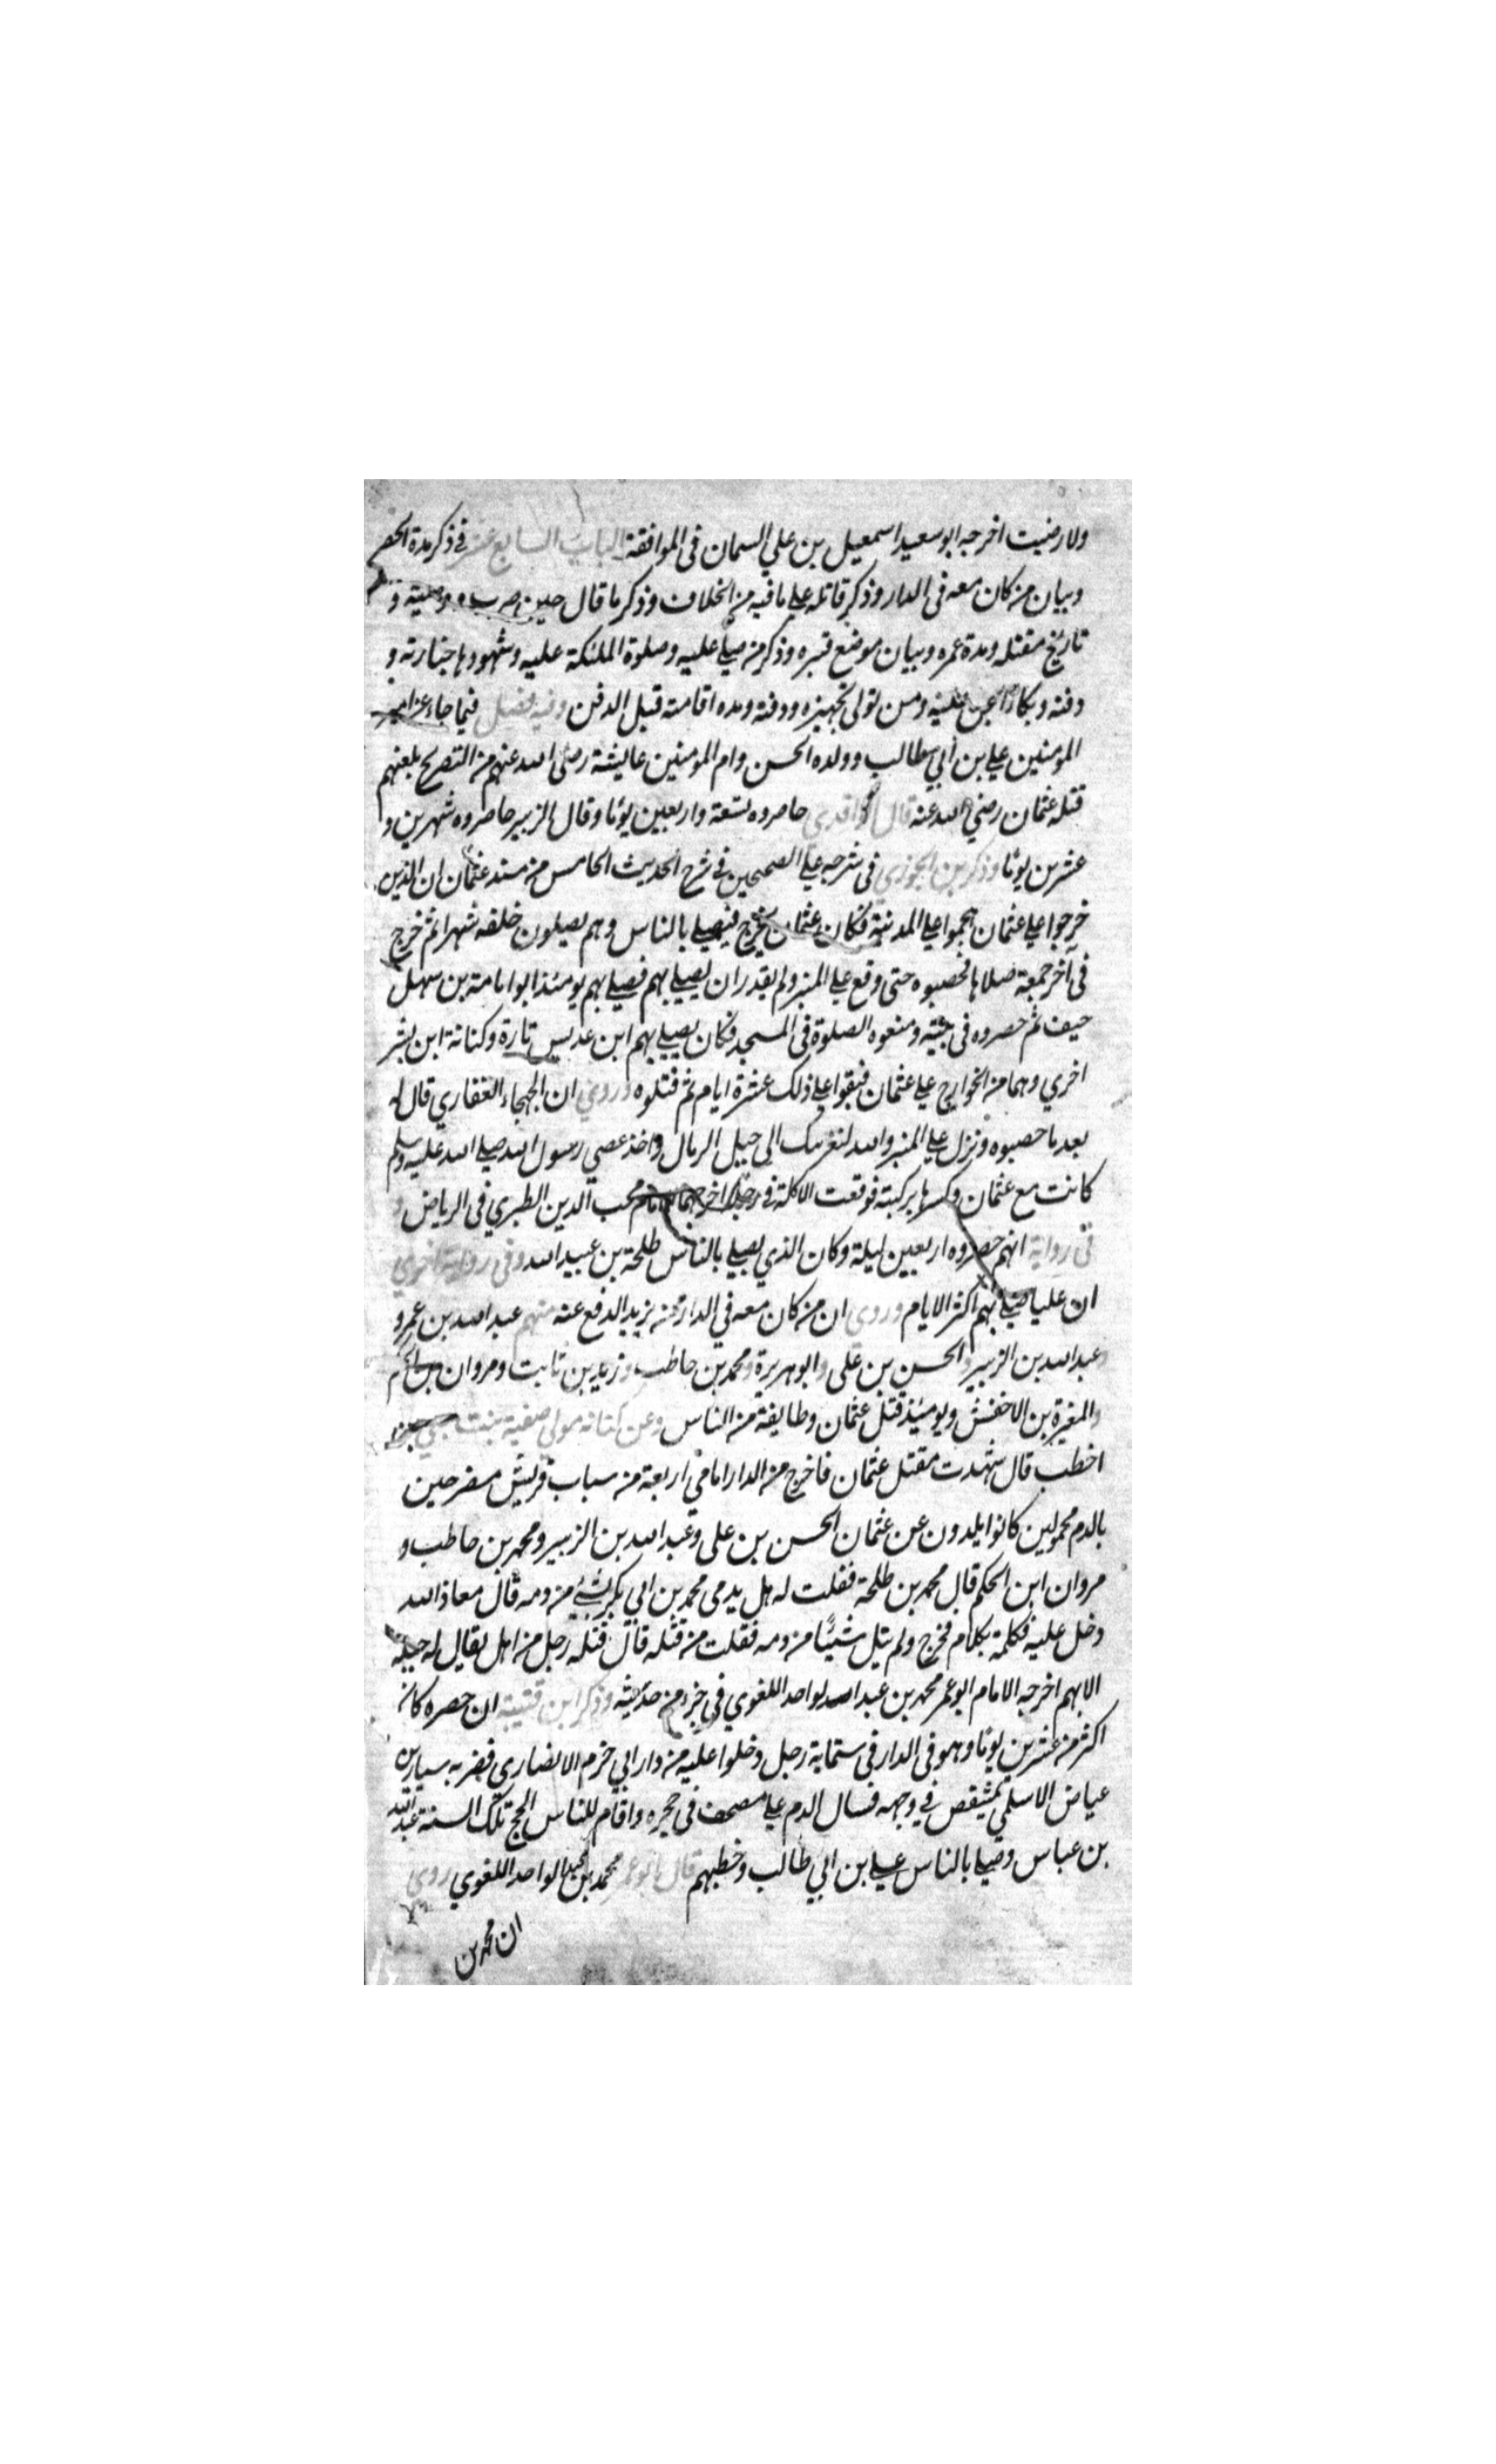 ولا رضيت اخرجه ابو سعيد اسمعيل بن علي السمان فى الموافقة الباب السابع عشر في ذكر مدة الحصر
وبيان من كان معه فى الدار وذكر قاتله علي ما فيه من الخلاف وذكر ما قال حين ضرب ووصيته و
تاريخ مقتله ومدة عمره وبيان موضع قبره وذكر من صلي عليه وصلوة الملئكة عليه وشهودها جنازته و
دفنه وبكاء الجن عليه ومن تولى تجهيزه ودفنه ومده اقامته قبل الدفن وفيه فصل فيما جاء عن امير
المومنين علي بن أبي طالب وولده الحسن وام المومنين عايشة رضى الله عنهم من التصريح بلعنهم
قتله عثمان رضي الله عنه قال الواقدي حاصروه تسعة واربعين يومًا وقال الزبير حاصروه شهرين و
عشرين يومًا وذكر بن الجوزي فى شرحه علي الصحيحين في شرح الحديث الخامس من مسند عثمان ان الذين
خرجوا علي عثمان هجموا علي المدينة فكان عثمان يخرج فيصلي بالناس وهم يصلون خلفه شهرا ثم خرج
فى آخر جمعة صلاها فحصبوه حتى وقع علي المنبر ولم يقدر ان يصلي بهم فصلي بهم يومئذ ابو امامة بن سهل
حيف ثم حصروه فى بيته ومنعوه الصلوة فى المسجد فكان يصلي بهم ابن عديس تارة وكنانة ابن بشر
اخري وهما من الخوارج علي عثمان فبقوا علي ذلك عشرة ايام ثم قتلوه وروي ان الجهجاء الغفاري قال له
بعد ما حصبوه ونزل علي المنبر والله لنغربنك الي جبل الرمال واخذ عصي رسول الله صلي الله عليه وسلم
كانت مع عثمان وكسرها بركبته فوقعت الاكلة في رجله اخرجهما الامام محب الدين الطبري فى الرياض و
فى رواية انهم حصروه اربعين ليلة وكان الذي يصلي بالناس طلحة بن عبيد الله وفى رواية اخري
ان عليا صلي بهم اكثر الايام وروي ان من كان معه في الدار ممن يريد الدفع عنه منهم عبد الله بن عمر و
وعبد الله بن الزبير والحسن بن على وابو هريرة ومحمد بن حاطب وزيد بن ثابت ومروان بن الحكم
والمغيرة بن الاخفش ويومئذ قتل عثمان وطايفة من الناس وعن كنانه مولي صفية بنت حيي بن
اخطب قال شهدت مقتل عثمان فاخرج من الدار امامي اربعة من سباب قريش مضرحين
بالدم محمولين كانوا يلدون عن عثمان الحسن بن على وعبد الله بن الزبير ومحمد بن حاطب و
مروان ابن الحكم قال محمد بن طلحة فقلت له هل يدمى محمد بن ابي بكر بشئ من دمه قال معاذ الله
دخل عليه فكلمة بكلام فخرج ولم يتل شيئًا من دمه فقلت من قتله قال قتله رجل من اهل يقال له جبله
الابهم اخرجه الامام ابو عمر محمد بن عبد الواحد اللغوي في جزء من حديثه وذكر ابن قتيبة ان حصره كان
اكثر من عشرين يومًا وهو فى الدار فى ستماية رجل دخلوا عليه من دار ابي حزم الانصاري فضربه سيار بن
عياض الاسلمي بمشقص في وجهه فسال الدم علي مصحف فى حجره واقام للناس الحج تلك السنة عبد الله
بن عباس وصلي بالناس علي بن ابي طالب وخطبهم قال ابو عمر محمد بن عبد الواحد اللغوي روي
ان محمد بن